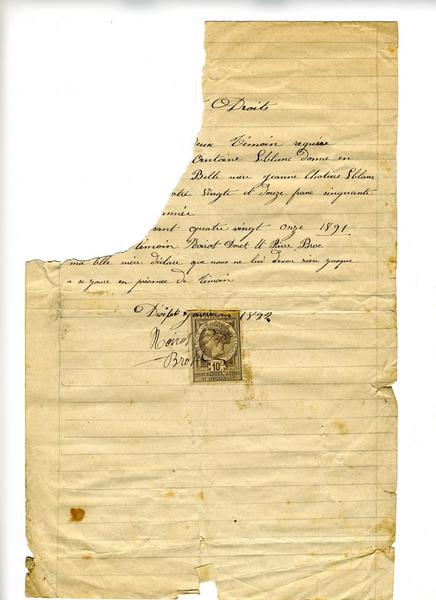 Droits
deux Témoin requise
Antoine Leblanc donne en
Belle mere jeanne Leblanc
vingt et Douze franc cinquante
année
sant quatre vingt onze 1891
temoin Noirot Pierre Broc
ma belle mère déclare que nous ne lui devon rien jusque
a se jour en présance de Témoin
1892
Noirot
Bro
10c